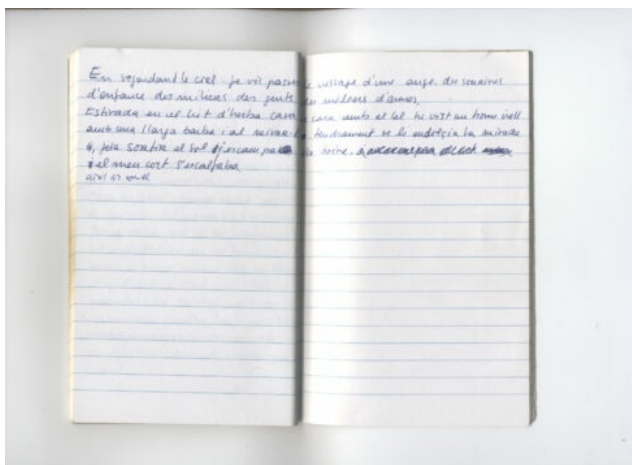 En regardant le ciel je vis passer le visage d'une ange. des sourires
d'enfance des milliers des gents, des milliers d'annes,
Estirada en el llit d'herba cara a cara amb el cel he vist un home vell
amb una llarga barba i al mirar-lo tendrament se li endolçia la mirada
feia sortir el sol i escampa la boira.
i el meu cort s'escalfaba